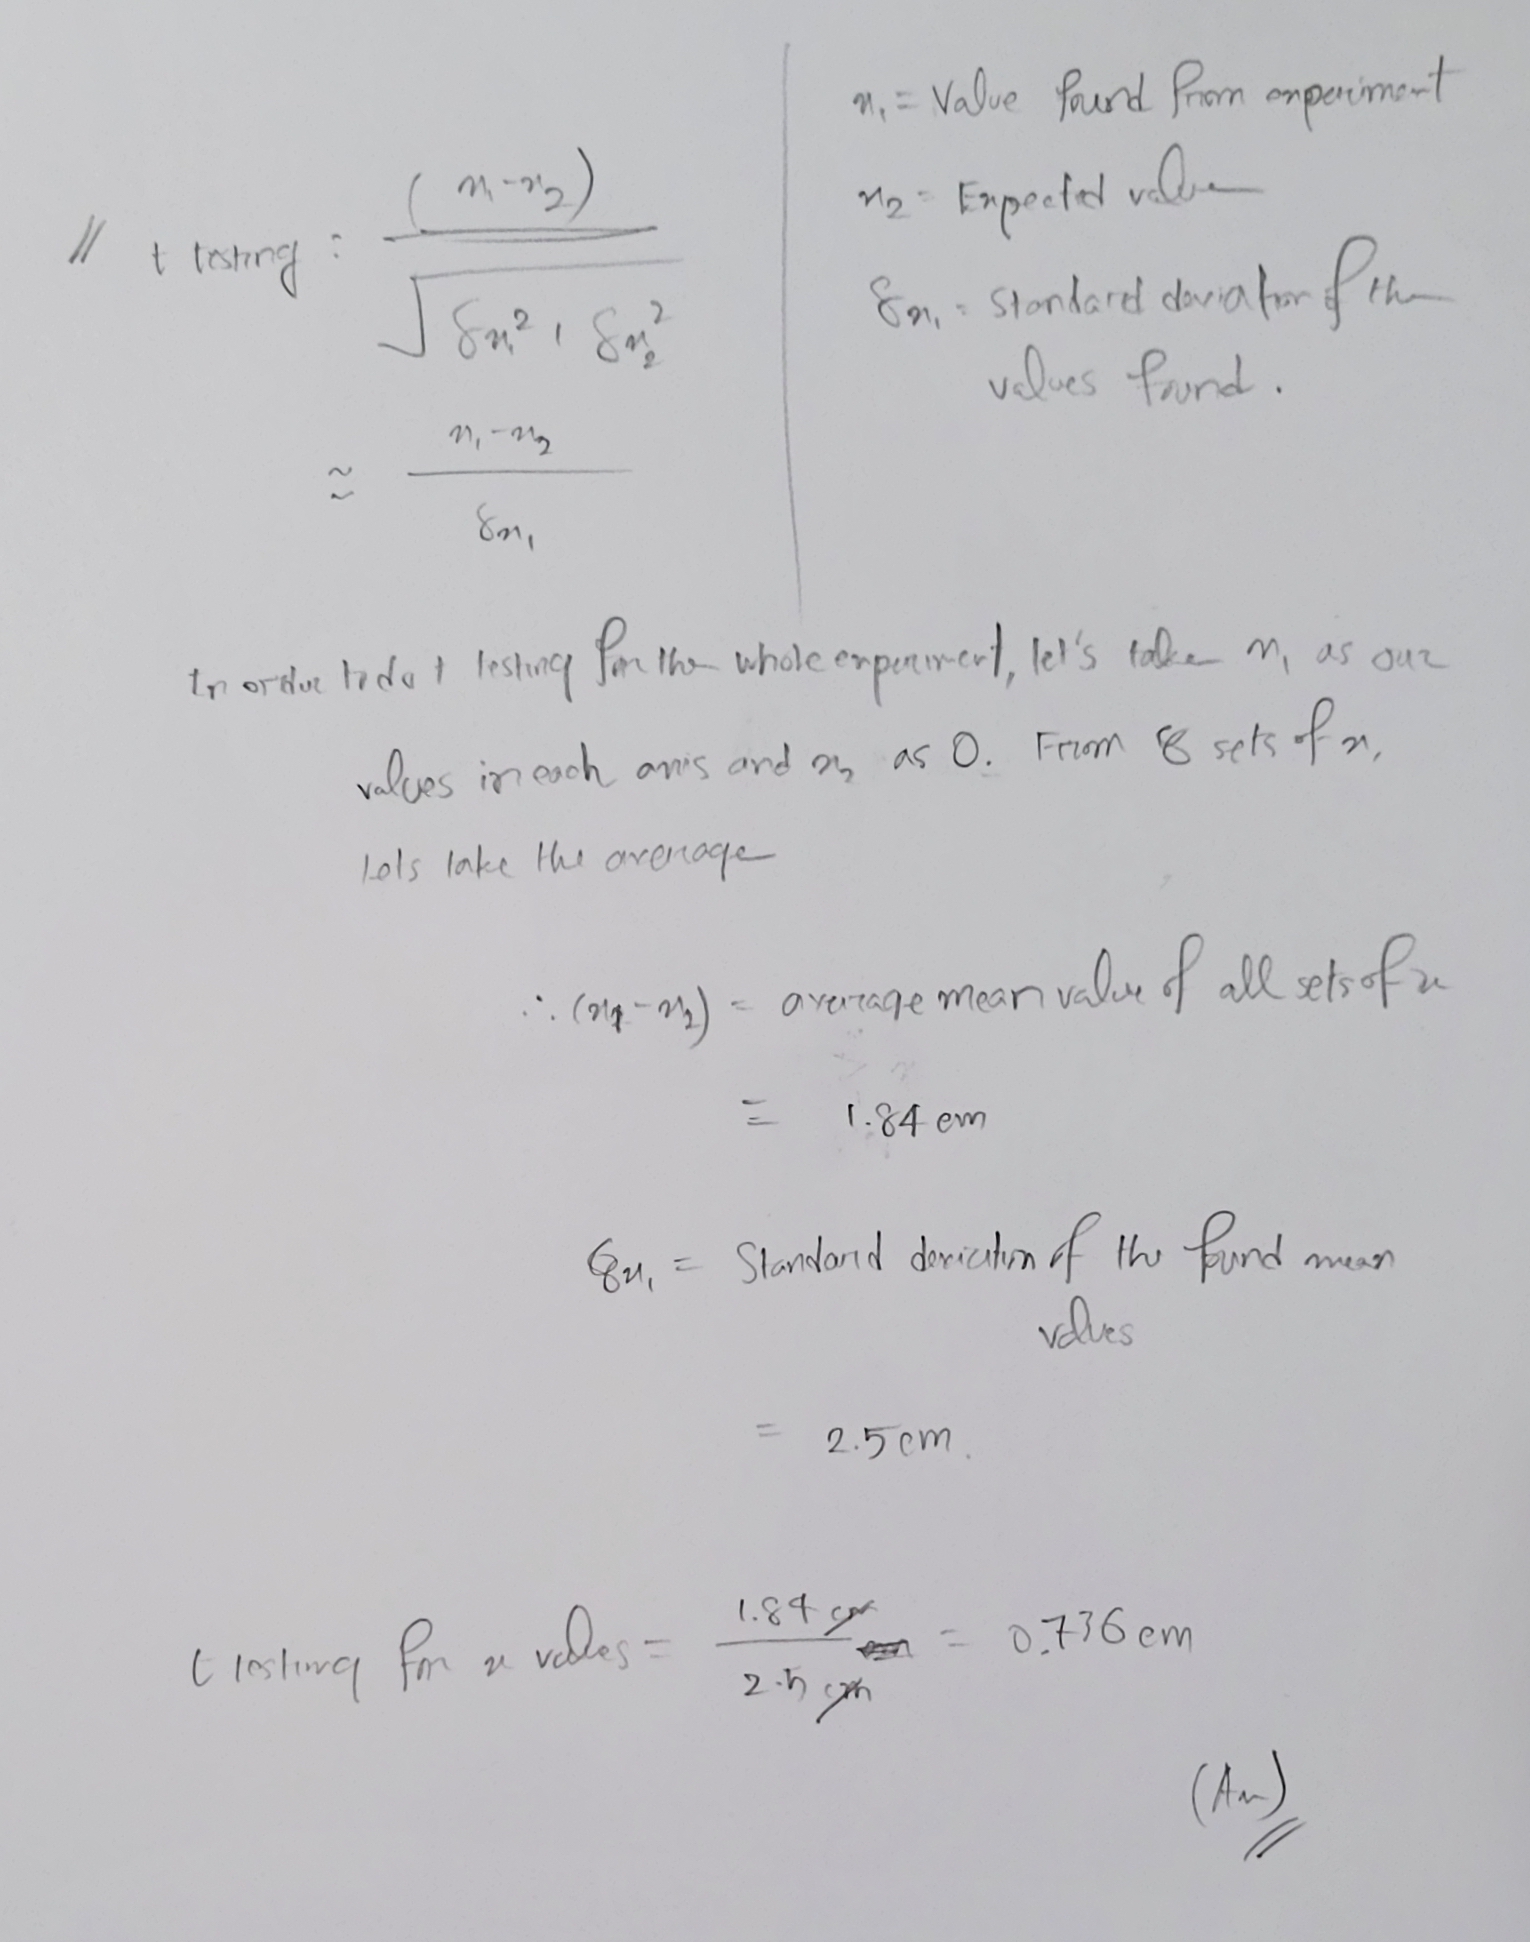 x₁ = Value found from experiment
x₂ = Expected value
δx₁ = Standard deviation of the
values found.
// t testing : (x₁-x₂)
√ δx₁² + δx₂²
≈ x₁-x₂
δx₁
In order to do t testing for the whole experiment, let's take x₁ as our
values in each axis and x₂ as 0. From 8 sets of x,
lets take the average
∴ (x₁-x₂) = average mean value of all sets of x
= 1.84 cm
δx₁ = Standard deviation of the found mean
values
= 2.5 cm.
t testing for x values = 1.84 cm / 2.5 cm = 0.736 cm
(Am)